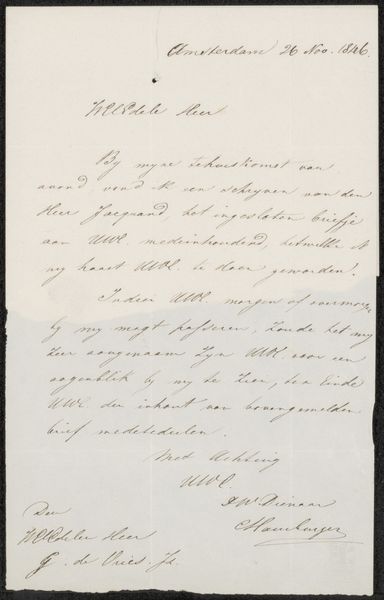 Amsterdam 26 Nov. 1846.
WelEdele Heer
By myne tehuiskomst van
avond, vond ik een schryven van den
Heer Jacquand, het ingesloten briefje
aan UWE. medeinhoudend, hetwelke ik
my haast UWE. te doen geworden.
Indien UWE. morgen of overmorgen
by my mogt passeren, zoude het my
zeer aangenaam zyn UWE. voor een
oogenblik by my te zien, ten einde
UWE. den inhoud van bovengemelden
brief medetedeelen.
Med Achting
UWE.
DW Dienaar
CHamburger
Den
WelEdelen Heer
G. de Vries. Jz.